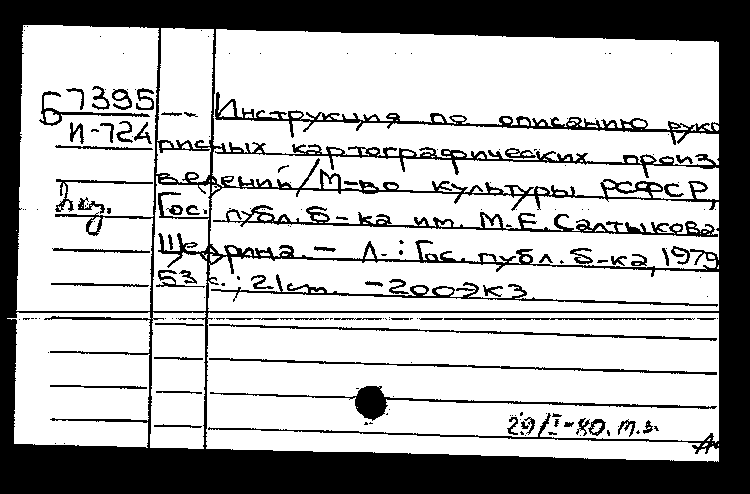 Б 7395
И-724
Инструкция по описанию руко
писных картографических произ-
ведений / М-во культуры РСФСР,
Гос. публ. б-ка им. М.Е. Салтыкова-
Щедрина. – Л. : Гос. публ. б-ка, 1979
53 с.; 21 cm. – 200 экз.
29/I-80. т.з.